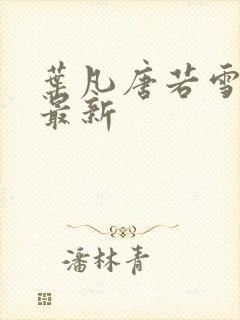 葉凡唐若雪
最新
潘林青